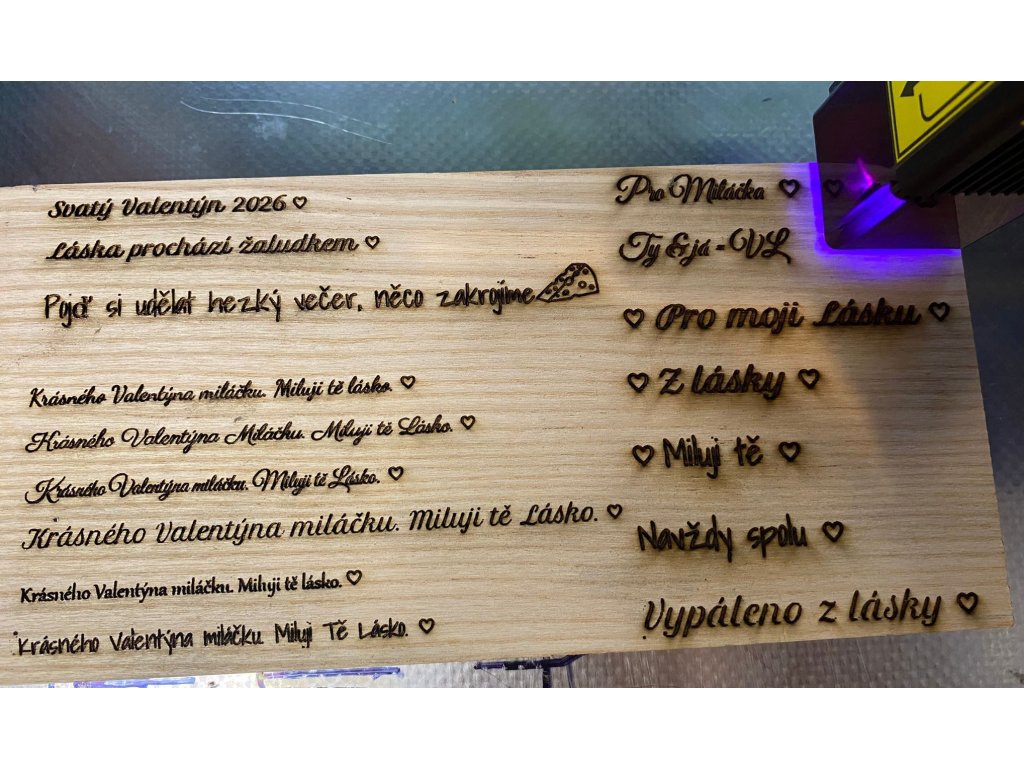 Svatý Valentýn 2026 ♡
Láska prochází žaludkem ♡
Pojď si udělat hezký večer, něco zakrojíme
Krásného Valentýna miláčku. Miluji tě lásko. ♡
Krásného Valentýna Miláčku. Miluji tě Lásko. ♡
Krásného Valentýna miláčku. Miluji tě Lásko. ♡
Krásného Valentýna miláčku. Miluji tě Lásko. ♡
Krásného Valentýna miláčku. Miluji tě lásko. ♡
Krásného Valentýna miláčku. Miluji Tě Lásko. ♡
Pro Miláčka ♡ ♡
Ty & já = VL
♡ Pro moji Lásku ♡
♡ Z lásky ♡
♡ Miluji tě ♡
Navždy spolu ♡
Vypáleno z lásky ♡